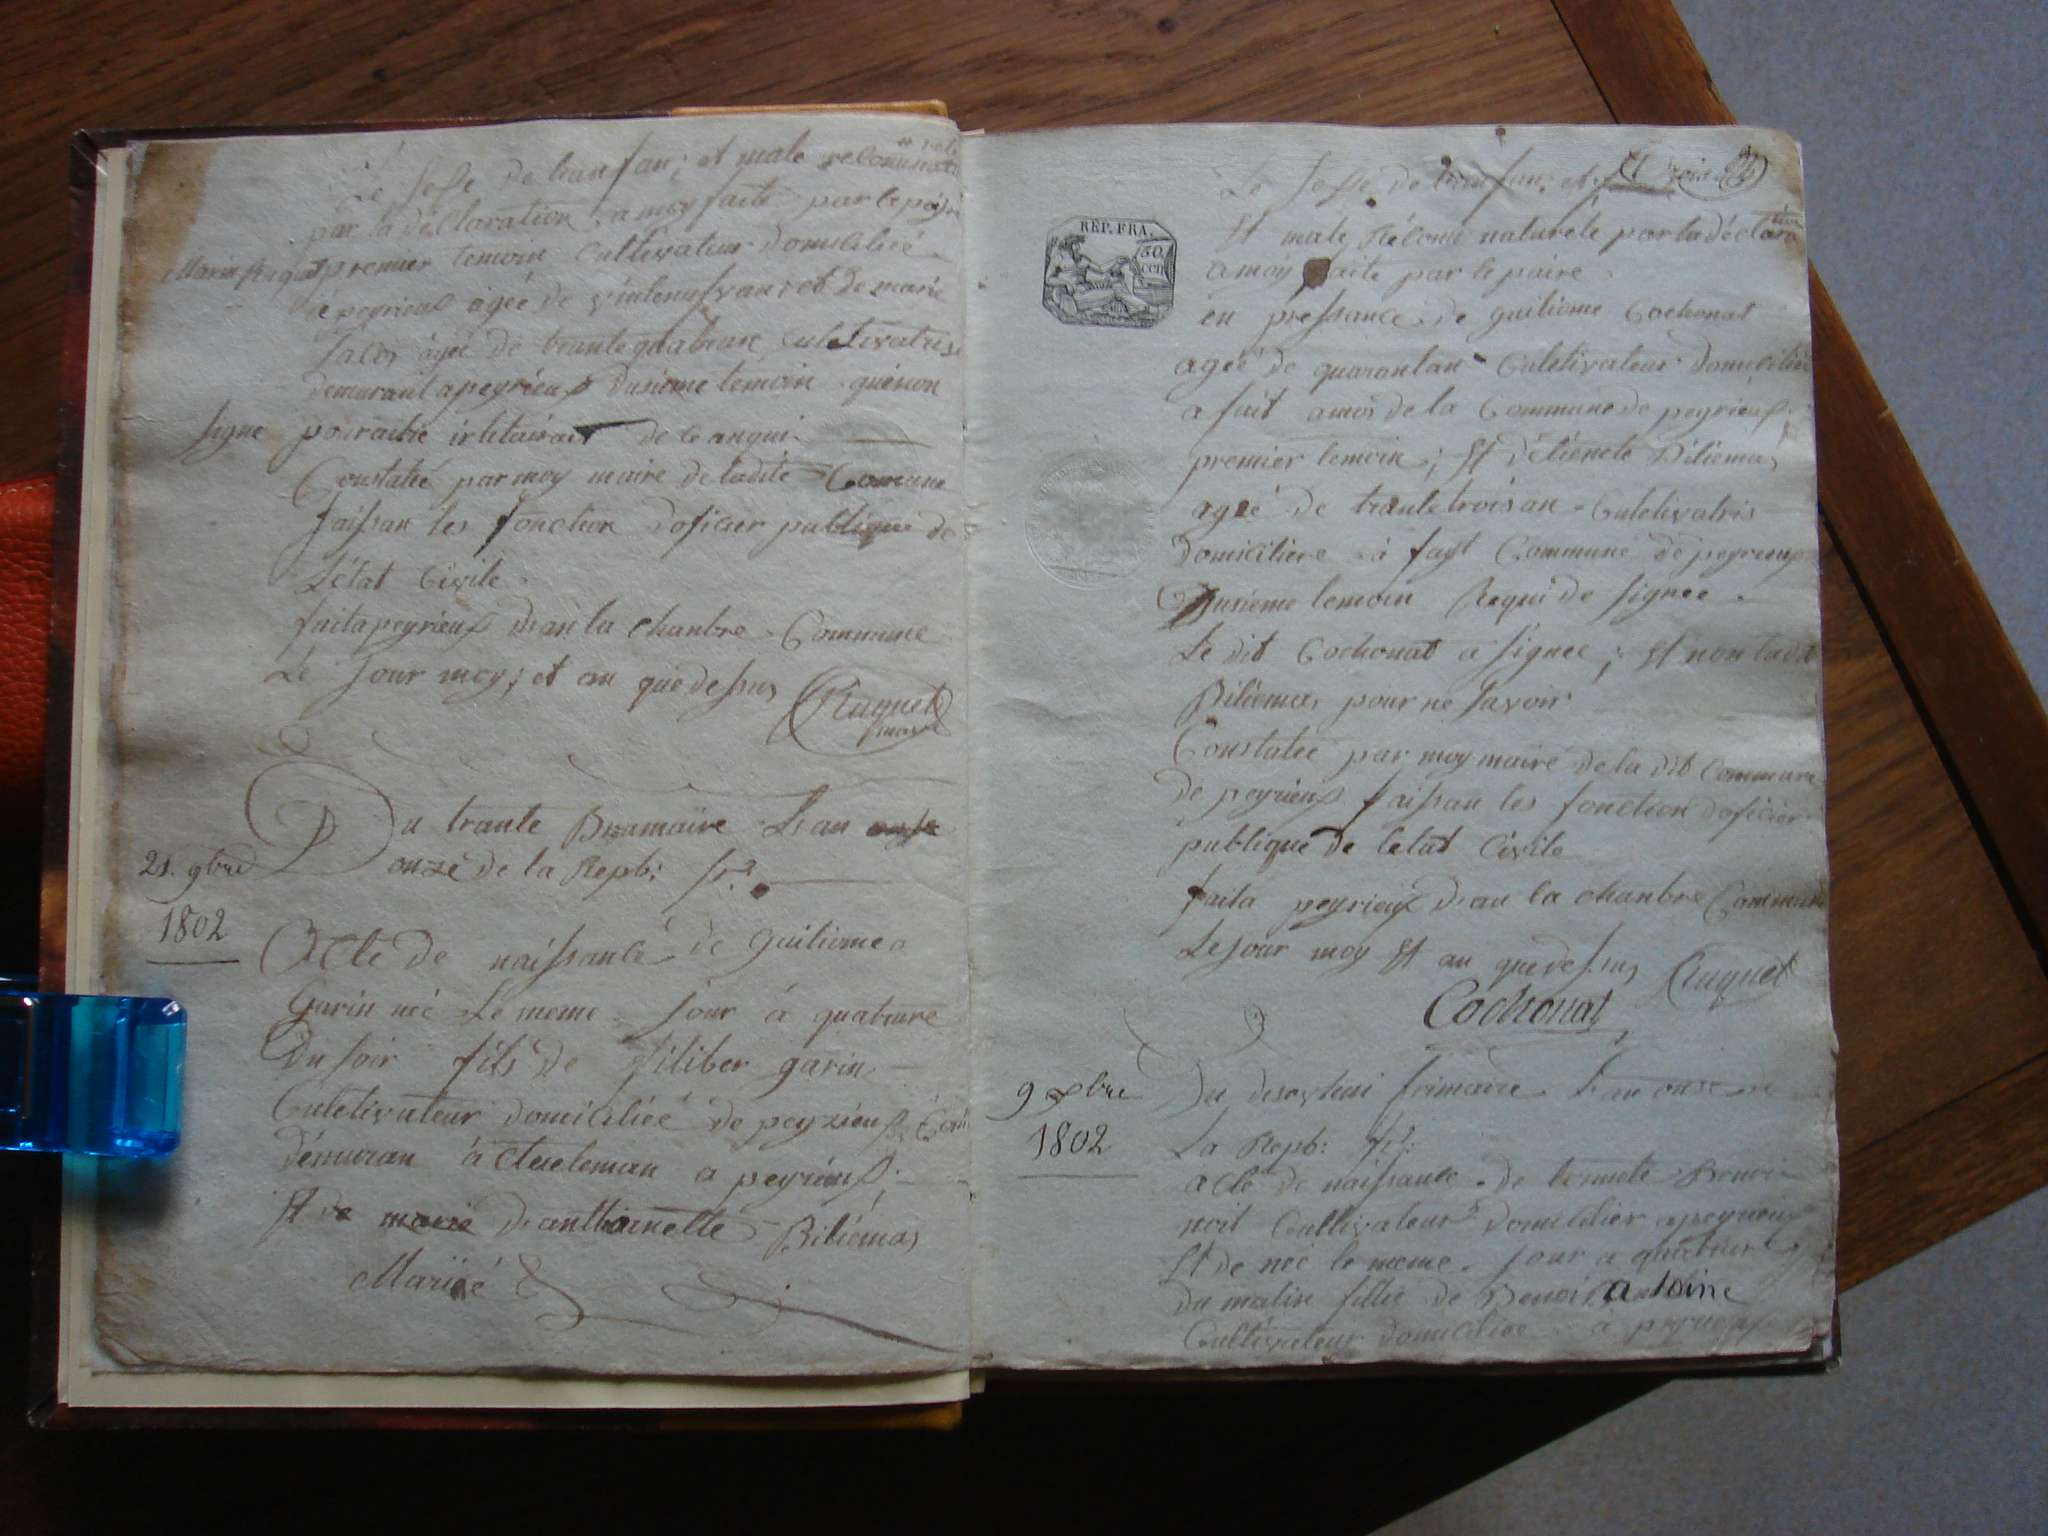 Le sexe de lanfan; et male reconnus
par la déclaration a moy faite par le pair
premier temoin Cultivateur domicilicé
a peyrieux agéé de vintenufvan et de marie
agée de trantequatran culetivatris
demurant a peyrieux dusieme temoin
signe de ce anqui
Constaté par moy maire de ladite Comune
faissan les fonction doficier publique de
L'état Civile.
fait a peyrieux dran la chanbre Commune
Le jour moy; et an que dessus Ruquet
maire
Du trante Brumaire Lan
onzé de la Repb: fr.?
21. 9bre
1802
Acte de naissance de guiliome
Garin néé Le meme jour á quatrure
Du soir fils de filiber garin
Culetivateur domicilicé de peyrieux
démuran à a peyrieux;
Et de marie dranthoinette Biliemas
Mariéé
Le sexe de lanfan; et
Et male, Réconu naturéle par la déclara
tion
a moy faite par le paire
REP. FRA.
50
cen
en pressance de guiliome Cochonat
ageé de quarantan Culetivateur domicilié
a fait amos de la Commune de peyrieux
premier temoin; Et Biliemas
ageé de trante troisan Culetivatris
domiciliere à fayt Commune de peyrieux
dusieme temoin Requi de signee.
Le dit Cochonat a signee; Et non ladit
Biliemas pour ne savoir
Constatée par moy maire de la dit Commune
de peyrieux faissan les fonction doficier
publique de letat Civile
fait a peyrieux dran la chanbre Commune
Le jour moy Et an que dessus Ruquet
Cochonat
9 Xbre
1802
Du diseyhui frimaire Lan onze de
La Repb: fr?:
acte de naissance de Benoi
noit Cultivateur domicilier a peyrieux
Et de néé le meme jour a
du matin fillie de Benoit antoine
Cultivateur domicilice a peyrieux